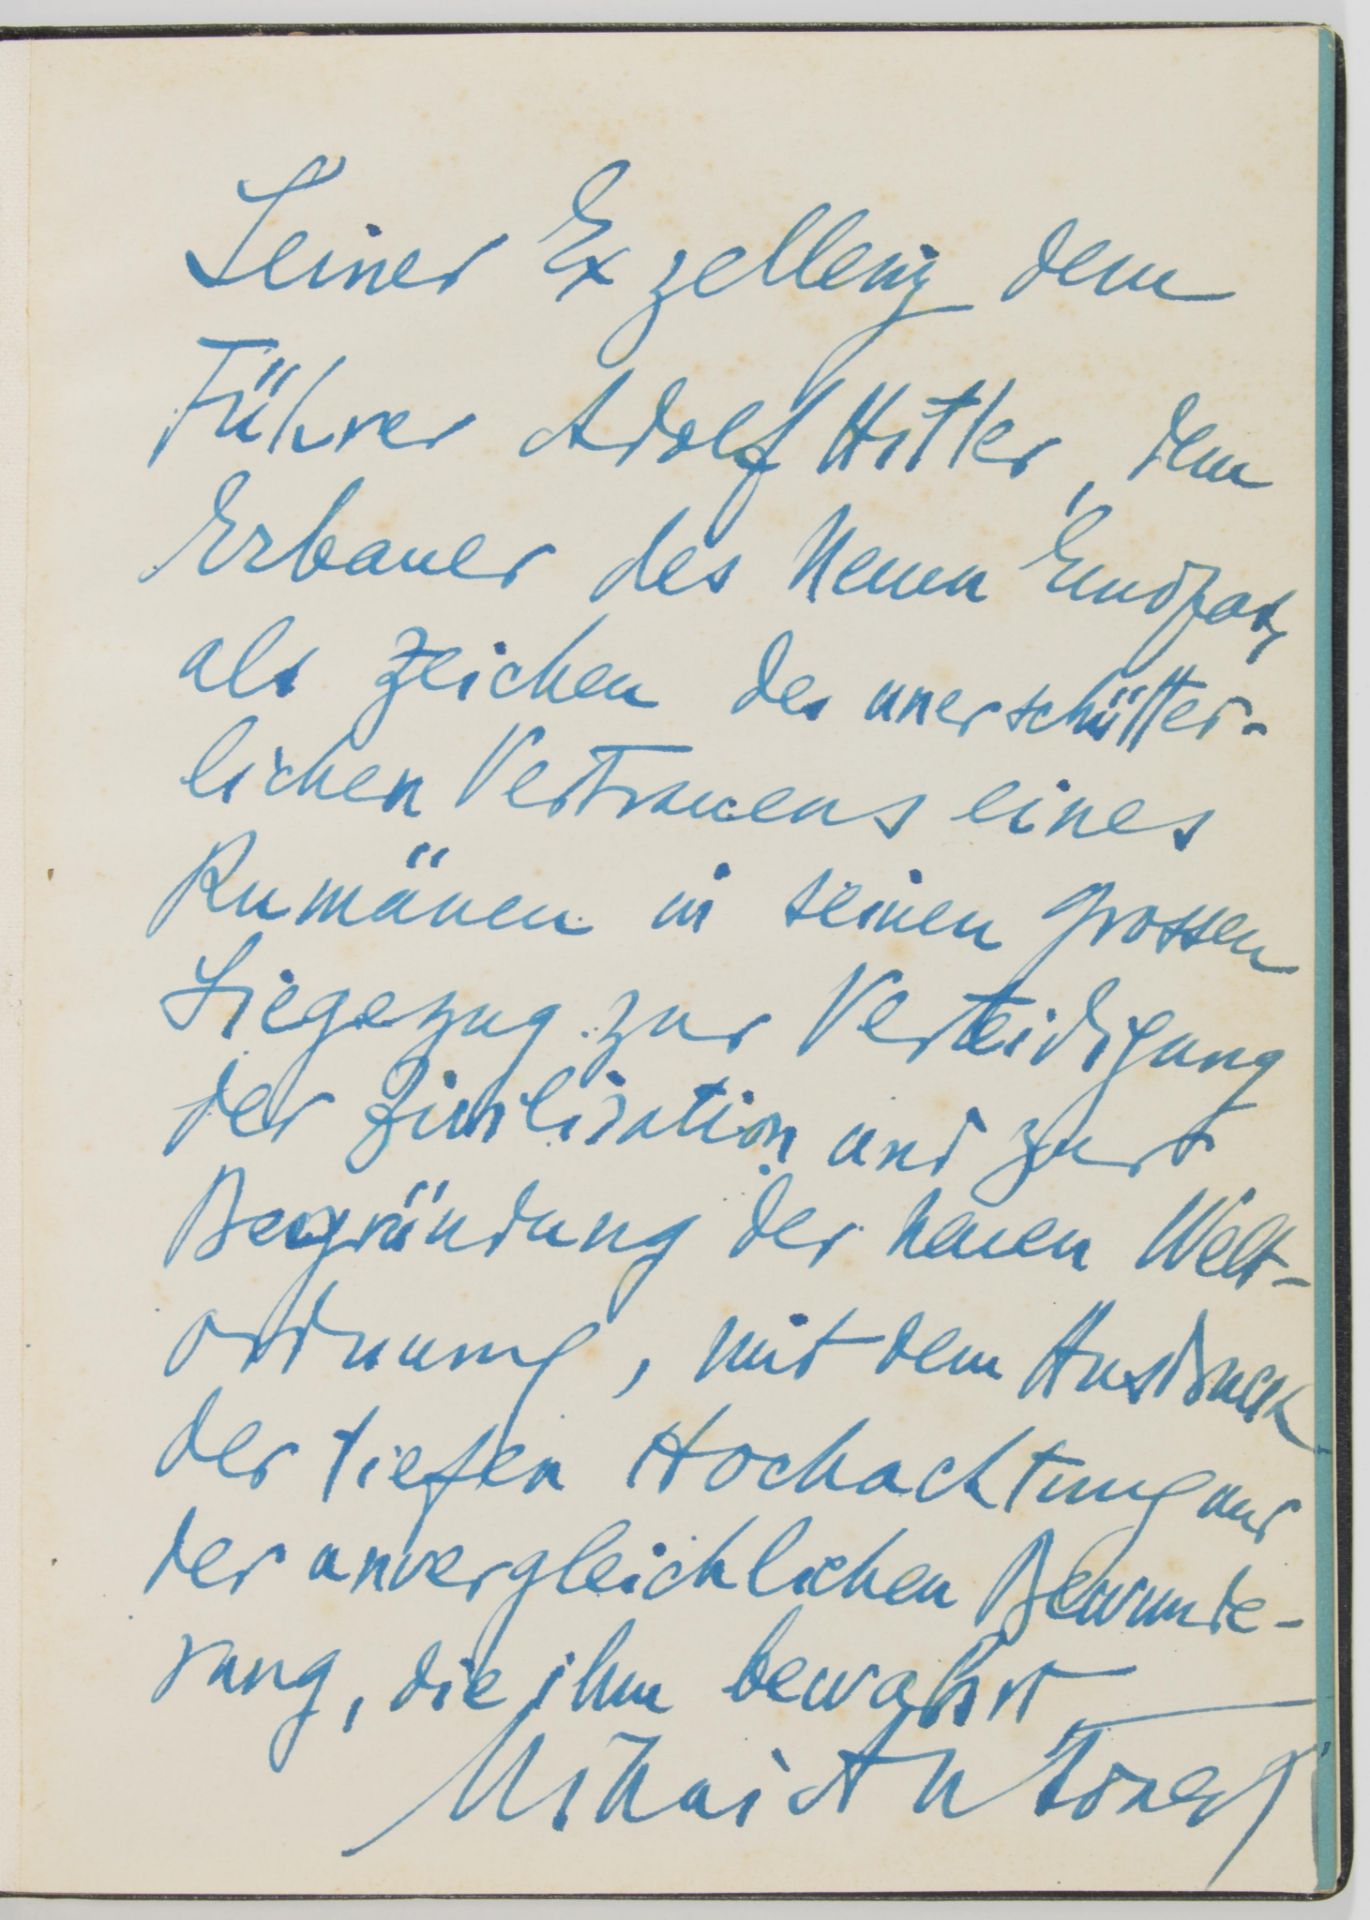 Seiner Exzellenz dem
Führer Adolf Hitler, dem
Erbauer des Neuen Europas,
als Zeichen des unerschütter-
lichen Vertrauens eines
Rumänen in seinen grossen
Siegeszug zur Verteidigung
der Zivilisation und zur
Begründung der neuen Welt-
ordnung, mit dem Ausdruck
der tiefen Hochachtung und
der unvergleichlichen Bewunde-
rung, die ihm bewahrt
Mihai Antonescu